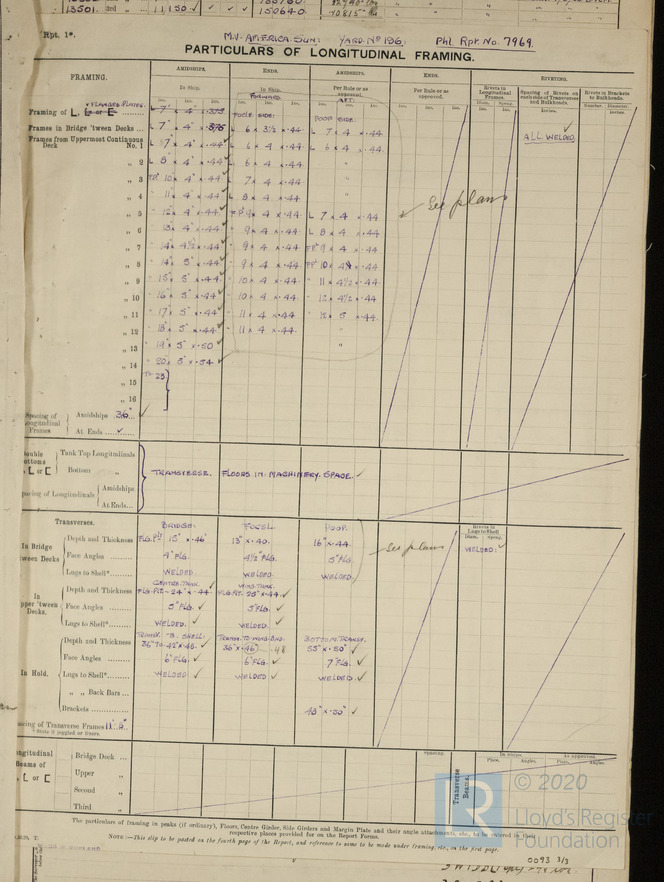 13501. 3rd 11,150 ✓ ✓ ✓ 150640.
Rpt. 1*.
M.V. AMERICA SUN: YARD. No 196. Phl. Rpt. No. 7969.
PARTICULARS OF LONGITUDINAL FRAMING.
FRAMING. AMIDSHIPS. ENDS. AMIDSHIPS. ENDS. RIVETING.
In Ship. In Ship. Per Rule or as approved. Per Rule or as approved. Rivets in Longitudinal Frames. Spacing of Rivets on each side of Transverses and Bulkheads. Rivets in Brackets to Bulkheads.
FORWARD. AFT.
Ins. Ins. Ins. Ins. Ins. Ins. Ins. Ins. Ins. Ins. Ins. Ins. Diam. Spacg. Inches. Number. Diameter.
FLANGED PLATES.
Framing of L, L 7" × 4" × .375 FOCLE SIDE: POOP SIDE:
Frames in Bridge 'tween Decks ... 7" × 4" × .375 L 6 × 3½ × .44 L 7 × 4 × .44
ALL WELDED.
Frames from Uppermost Continuous Deck No. 1 L 7" × 4" × .44 L 6 × 4 × .44 L 6 × 4 × .44
„ 2 L 8" × 4" × .44 6 × 4 × .44 "
„ 3 10" × 4" × .44 7 × 4 × .44 "
„ 4 11" × 4" × .44 L 8 × 4 × .44 "
See plans
„ 5 12" × 4" × .44 FP 9 × 4 × .44 L 7 × 4 × .44
„ 6 13" × 4" × .44 9 × 4 × .44 L 8 × 4 × .44
„ 7 14" × 4½" × .44 9 × 4 × .44 FP 9 × 4 × .44
„ 8 14" × 5" × .44 9 × 4 × .44 FP 10 × 4 × .44
„ 9 15" × 5" × .44 10 × 4 × .44 11 × 4½ × .44
„ 10 16" × 5" × .44 10 × 4 × .44 12 × 4½ × .44
„ 11 17" × 5" × .44 11 × 4 × .44 12 × 5 × .44
„ 12 18" × 5" × .44 11 × 4 × .44 "
„ 13 19" × 5" × .50 "
„ 14 20" × 5" × .54
„ 15 To 23
„ 16
Spacing of Longitudinal Frames Amidships 36" ✓
At Ends ... ✓
Double Bottoms L or [ Tank Top Longitudinals
Bottom „ TRANSVERSE. FLOORS IN MACHINERY SPACE. ✓
Spacing of Longitudinals Amidships
At Ends...
Transverses. BRIDGE: FOXEL POOP.
Rivets in Longl Shell
Diam. Spacg.
In Bridge 'tween Decks Depth and Thickness FLG. PLT 15" × .46" 13" × .40. 16" × .44. See plans WELDED. ✓
Face Angles ........ 4" FLG. 4½" FLG. 5" FLG.
Lugs to Shell* ...... WELDED. WELDED. WELDED.
CENTRE TANK ✓ WING TANK.
In Upper 'tween Decks. Depth and Thickness FLG. PLT – 24" × .44 FLG. PLT. 25" × .44 ✓
Face Angles ...... 5" FLG. ✓ 5" FLG. ✓
Lugs to Shell* ...... WELDED. ✓ WELDED. ✓
TRANSV. TS. SHELL. BOTTOM TRANSV.
In Hold. Depth and Thickness 36" To 42" × .48. ✓ 36" × .46 .48 55" × .50" ✓
Face Angles ........ 6" FLG. ✓ 6" FLG. ✓ 7" FLG. ✓
Lugs to Shell* ...... WELDED ✓ WELDED. ✓ WELDED. ✓
„ „ Back Bars ...
Brackets .......... 48" × .50" ✓
Spacing of Transverse Frames 11'. 9"
* State if joggled or liners.
Spacing. In Ship. As approved.
Plate. Angles. Plate. Angles.
Longitudinal Beams of L or [ Bridge Deck ...
Upper „
Second „
Third „
Transverse Beams.
© 2020
Lloyd's Register
Foundation
The particulars of framing in peaks (if ordinary), Floors, Centre Girder, Side Girders and Margin Plate and their angle attachments, etc., to be entered in their
respective places provided for on the Report Forms.
NOTE:—This slip to be pasted on the fourth page of the Report, and reference to same to be made under framing, etc., on the first page.
0093 3/3